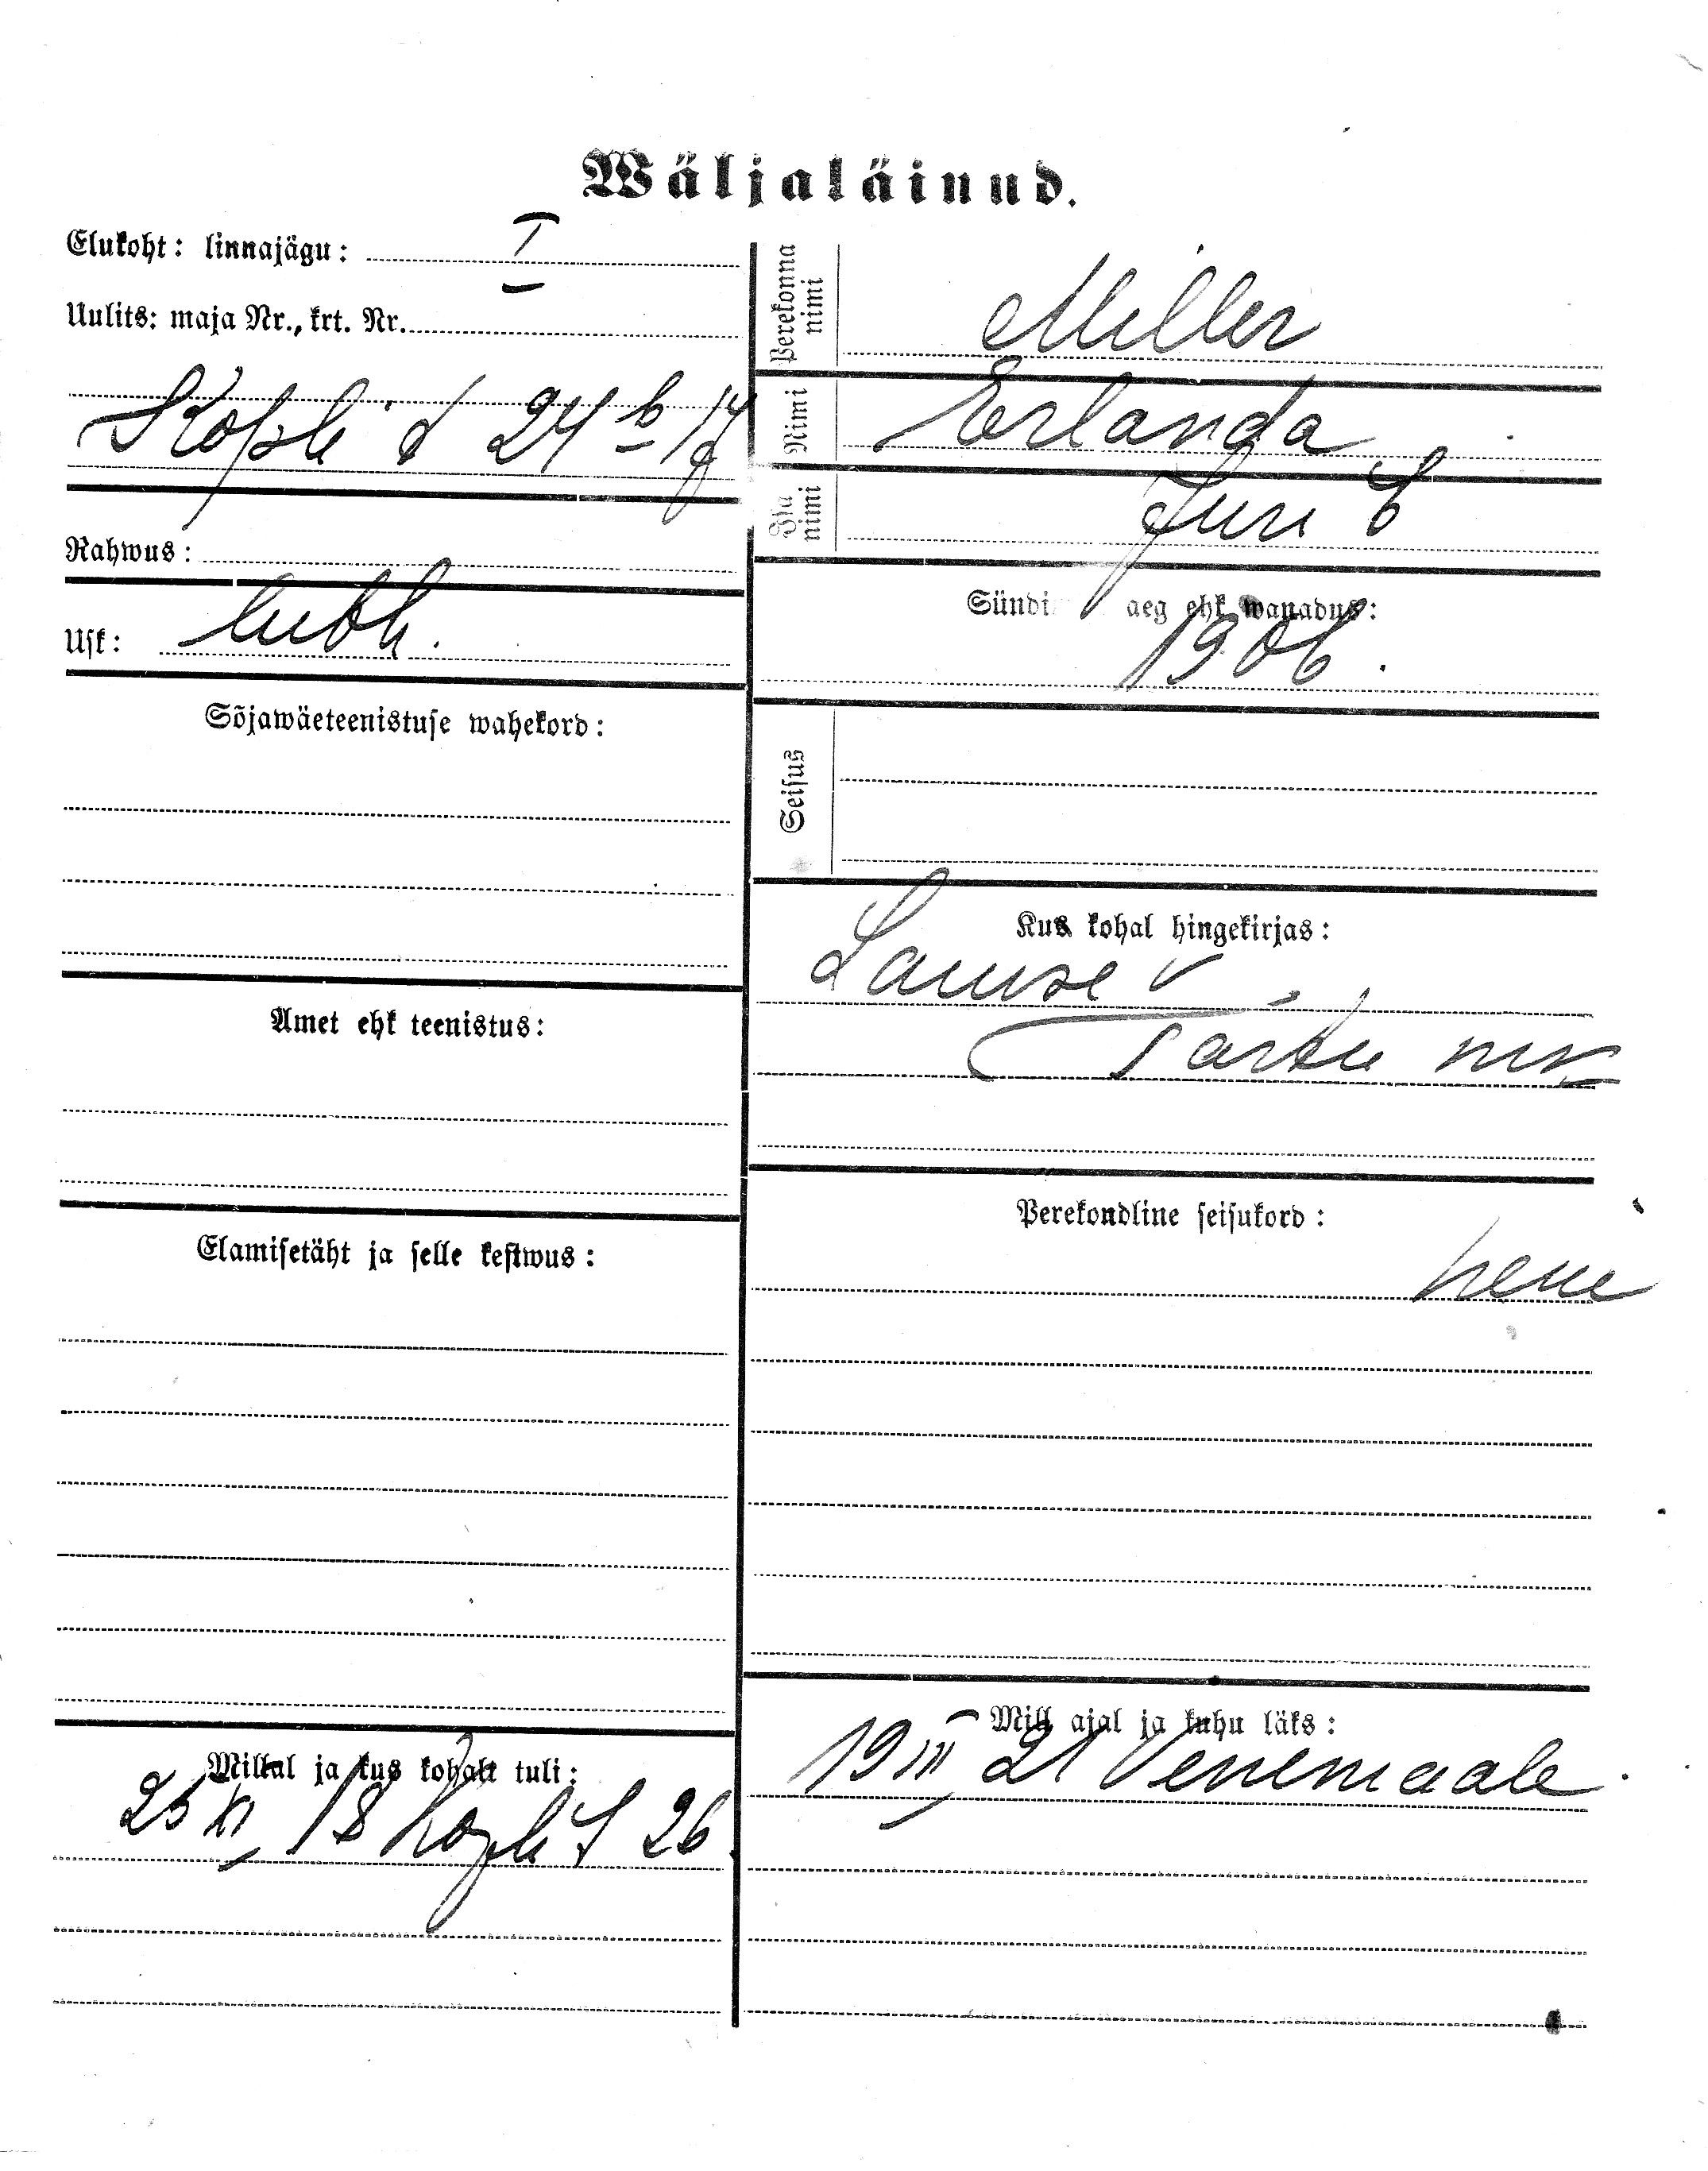 Wäljaläinud.
Elukoht: linnajägu: I
Uulits: maja Nr., krt. Nr.
Kopli t 24 b 17
Rahwus:
Usk: luth.
Sõjawäeteenistuse wahekord:
Amet ehk teenistus:
Elamisetäht ja selle kestwus:
Millal ja kus kohalt tuli:
25 XI 18 Kopli t 26.
Perekonna nimi Miller
Nimi Erlanda
Isa nimi Juri t
Sündi aeg ehk wanadus:
1906.
Seisus
Kus kohal hingekirjas:
v
Tartu mk
Perekondline seisukord:
Mill ajal ja kuhu läks:
19 III 21 Venemaale.